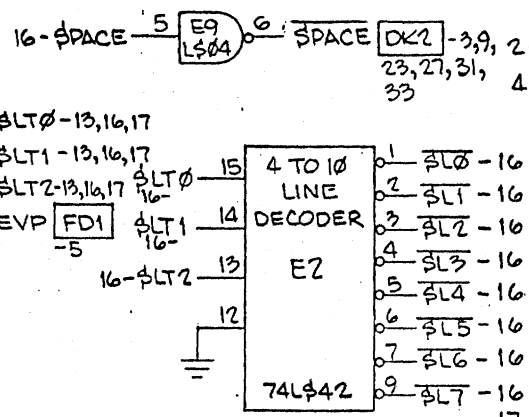 16-$PACE 5 E9 L$04 6 $PACE DK2 -3,9, 2
23, 27, 31, 4
33
$LTØ-13,16,17
$LT1-13,16,17
$LT2-13,16,17
EVP FD1
-5
$LTØ 15
16-
$LT1 14
16-
16-$LT2 13
12
4 TO 1Ø
LINE
DECODER
E2
74L$42
1 $LØ-16
2 $L1-16
3 $L2-16
4 $L3-16
5 $L4-16
6 $L5-16
7 $L6-16
9 $L7-16